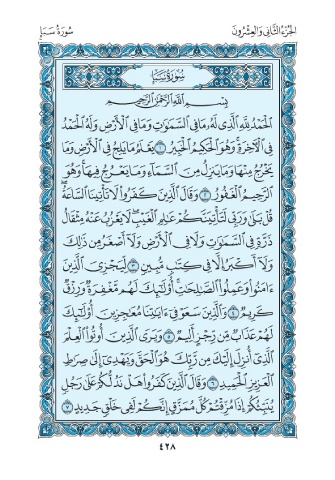 الجُزْءُ الثَّانِي وَالعِشْرُونَ
سُورَةُ سَبَإٍ
سُورَةُ سَبَإٍ
بِسْمِ اللَّهِ الرَّحْمَٰنِ الرَّحِيمِ
الْحَمْدُ لِلَّهِ الَّذِي لَهُ مَا فِي السَّمَٰوَٰتِ وَمَا فِي الْأَرْضِ وَلَهُ الْحَمْدُ
فِي الْآخِرَةِ وَهُوَ الْحَكِيمُ الْخَبِيرُ ١ يَعْلَمُ مَا يَلِجُ فِي الْأَرْضِ وَمَا
يَخْرُجُ مِنْهَا وَمَا يَنزِلُ مِنَ السَّمَاءِ وَمَا يَعْرُجُ فِيهَا وَهُوَ
الرَّحِيمُ الْغَفُورُ ٢ وَقَالَ الَّذِينَ كَفَرُوا لَا تَأْتِينَا السَّاعَةُ
قُلْ بَلَىٰ وَرَبِّي لَتَأْتِيَنَّكُمْ عَٰلِمِ الْغَيْبِ لَا يَعْزُبُ عَنْهُ مِثْقَالُ
ذَرَّةٍ فِي السَّمَٰوَٰتِ وَلَا فِي الْأَرْضِ وَلَا أَصْغَرُ مِن ذَٰلِكَ
وَلَا أَكْبَرُ إِلَّا فِي كِتَٰبٍ مُّبِينٍ ٣ لِّيَجْزِيَ الَّذِينَ
ءَامَنُوا وَعَمِلُوا الصَّٰلِحَٰتِ أُولَٰئِكَ لَهُم مَّغْفِرَةٌ وَرِزْقٌ
كَرِيمٌ ٤ وَالَّذِينَ سَعَوْ فِي ءَايَٰتِنَا مُعَٰجِزِينَ أُولَٰئِكَ
لَهُمْ عَذَابٌ مِّن رِّجْزٍ أَلِيمٌ ٥ وَيَرَى الَّذِينَ أُوتُوا الْعِلْمَ
الَّذِي أُنزِلَ إِلَيْكَ مِن رَّبِّكَ هُوَ الْحَقَّ وَيَهْدِي إِلَىٰ صِرَٰطِ
الْعَزِيزِ الْحَمِيدِ ٦ وَقَالَ الَّذِينَ كَفَرُوا هَلْ نَدُلُّكُمْ عَلَىٰ رَجُلٍ
يُنَبِّئُكُمْ إِذَا مُزِّقْتُمْ كُلَّ مُمَزَّقٍ إِنَّكُمْ لَفِي خَلْقٍ جَدِيدٍ ٧
٤٢٨